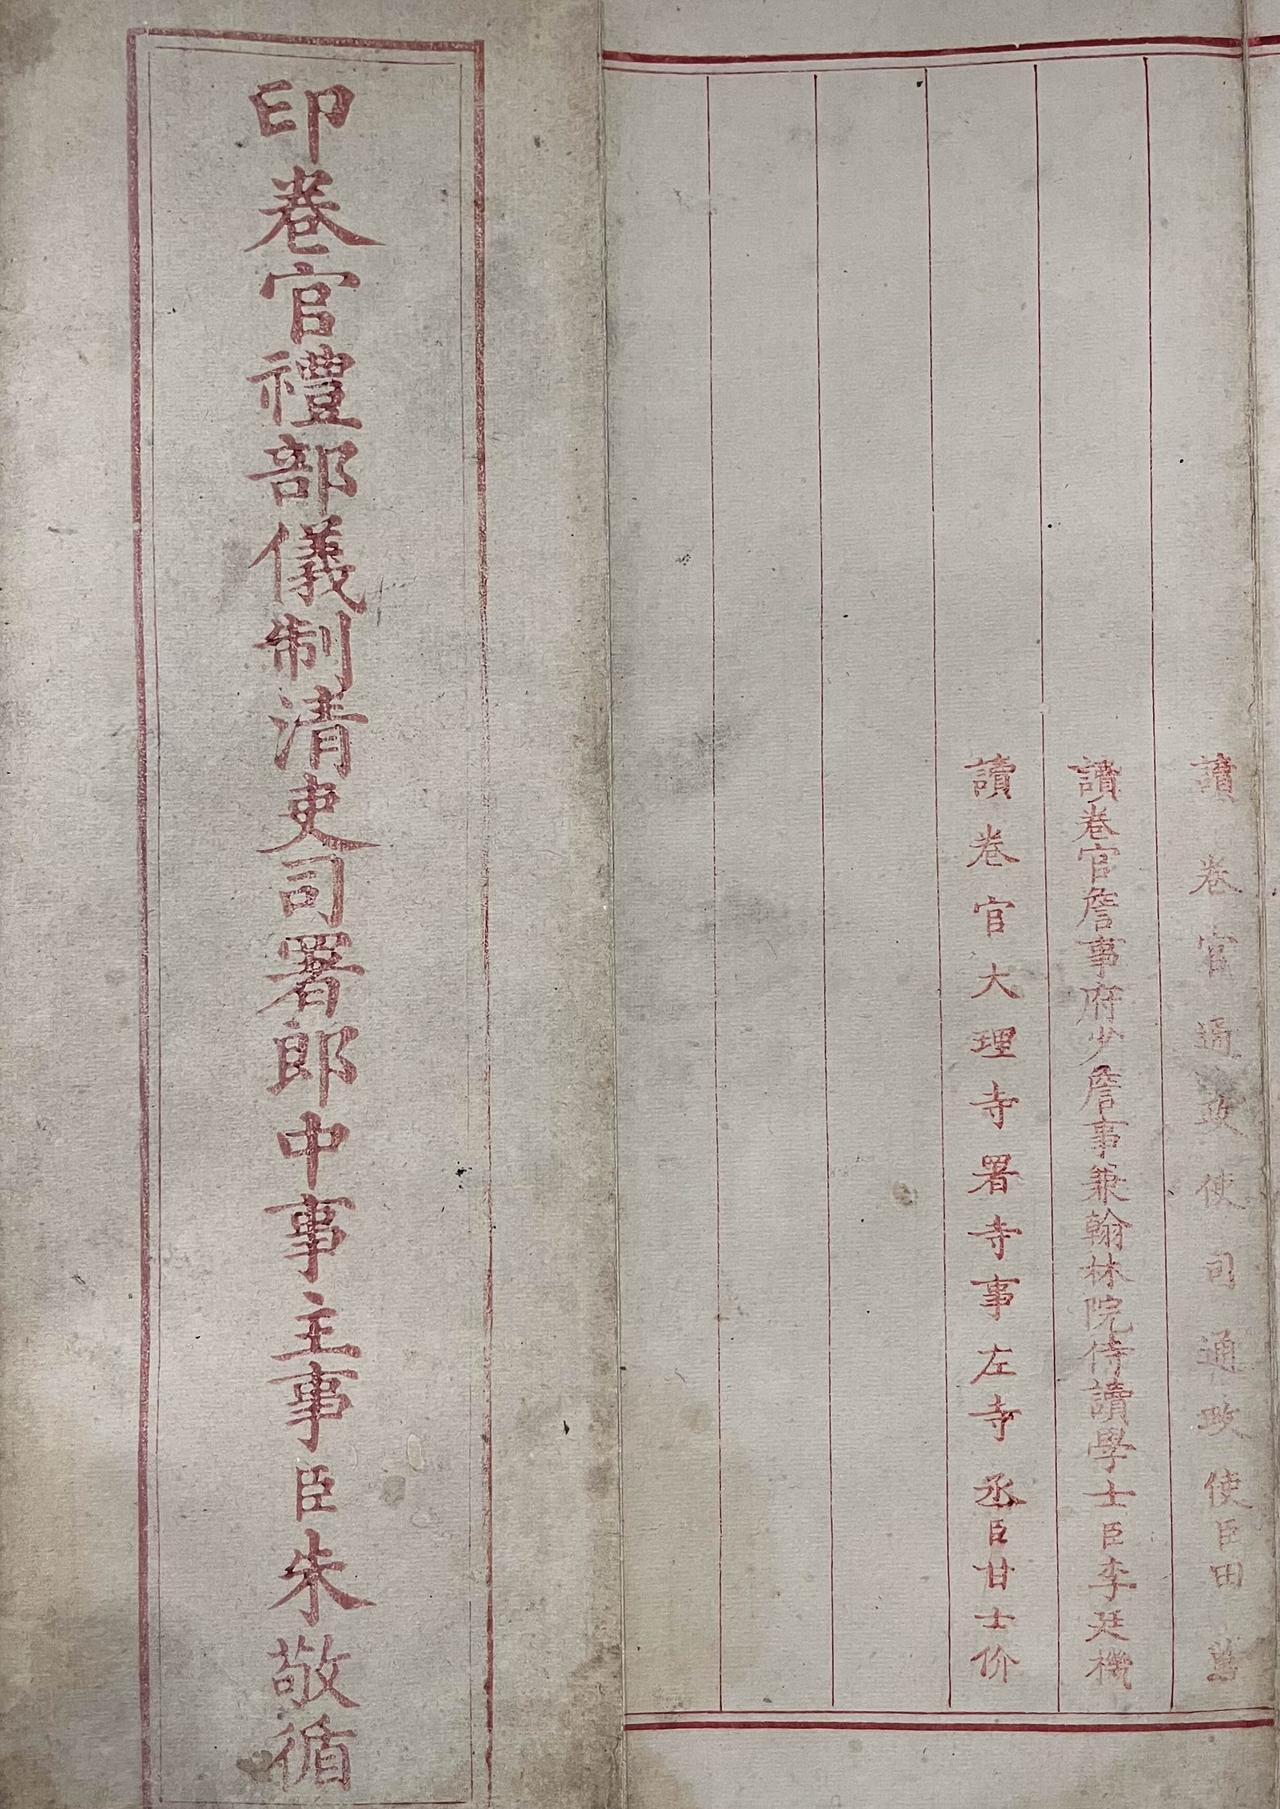 讀卷官通政使司通政使臣田蕙
讀卷官詹事府少詹事兼翰林院侍讀學士臣李廷機
讀卷官大理寺署寺事左寺丞臣甘士价
印卷官禮部儀制清吏司署郎中事主事臣朱敬循